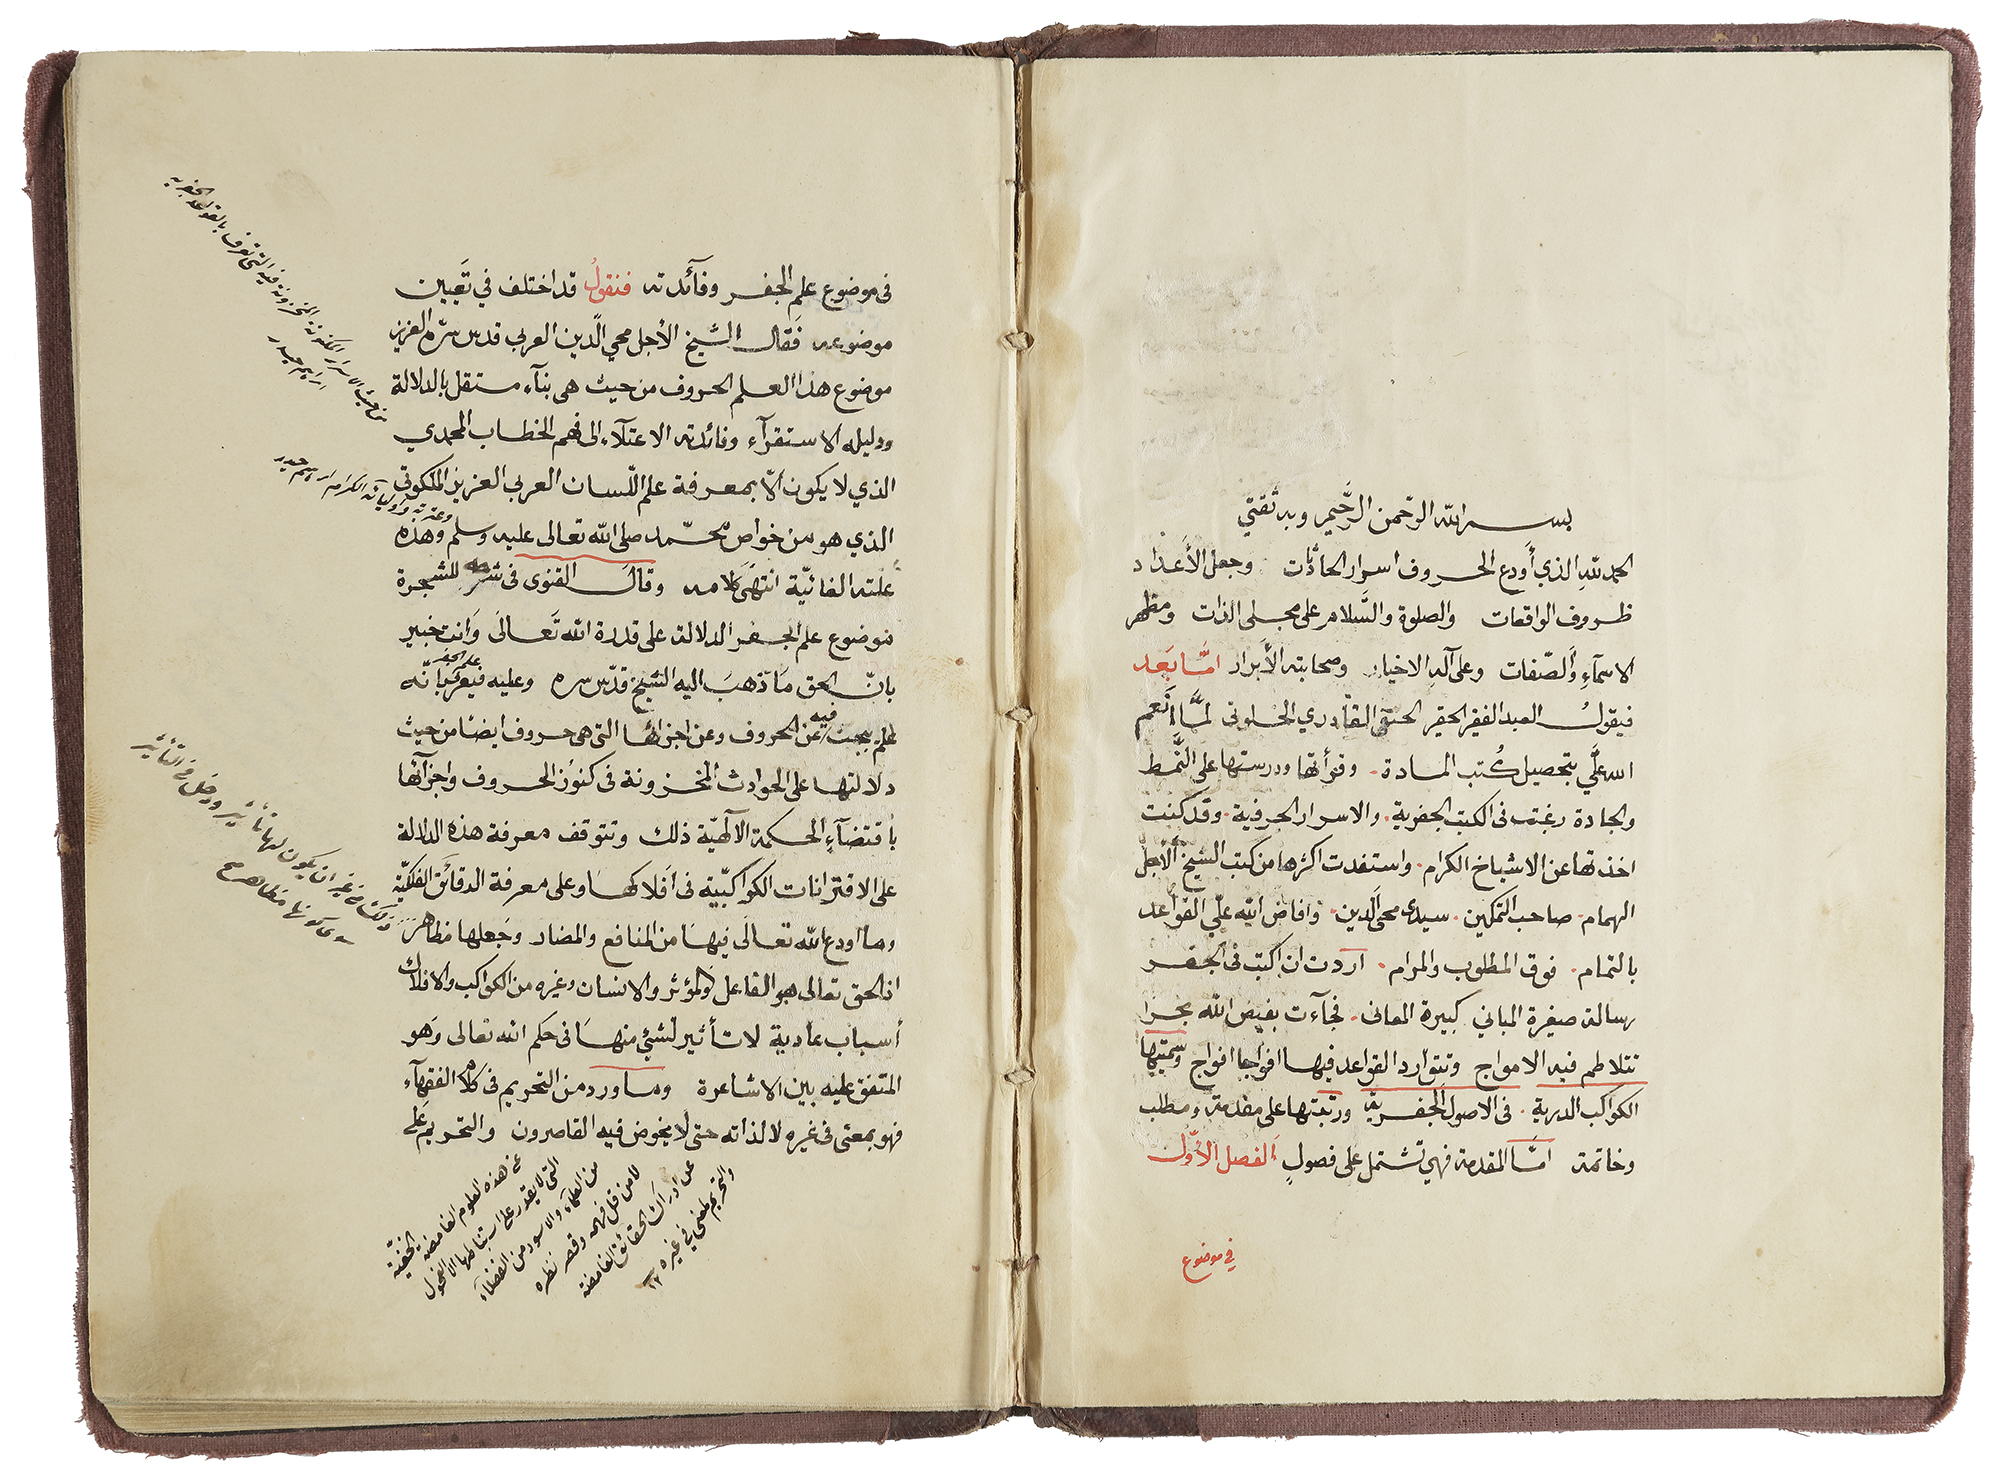 بسم الله الرحمن الرحيم وبه ثقتي
الحمد لله الذي أودع الحروف اسرار الحادثات وجعل الأعداد
ظروف الواقعات والصلوة والسَّلام على مجلى الذات ومظهر
الاسمآءِ والصّفات وعلى آله الاخيار وصحابته الأبرار امَّا بَعَد
فيقولُ العبد الفقير الحقير الحنفي القادري الخلوتى لمَّا أنعم
الله علَّي بتحصيل كُتب المادة وقرأتها ودرستها على النَّمط
والجادة رغبت فى الكتب الجفرية والاسرار الحرفية وقد كنت
اخذتها عن الاشياخ الكرام واستفدت اكثرها من كتب الشيخ الأجل
الهمام صاحب التمكين سيدى محى الدين وافاض الله علّي القواعد
بالتمام فوق المطلوب والمرام اردت ان اكتب فى الجفر
رسالة صغيرة المباني كبيرة المعانى فجآءت بفيض الله بحرا
تتلاطم فيه الامواج وتتوارد القواعد فيها افواجا افواج وسميتها
الكواكب الدرية فى الاصول الجفرية ورتبتها على مقدمة ومطلب
وخاتمة امَّا المقدمة فهي تشتمل على فصولٍ الفصل الأوّل
في موضوع
فى موضوع علم الجفر وفآئدته فنقولُ قد اختلف في تعيين
موضوعه فقال الشيخ الأجل محي الّدين العربى قدس سرّه العزيز
موضوع هذا العلم الحروف من حيث هى بنآء مستقل بالدلالة
ودليله الاستقرآء وفائدته الاعتلاء الى فهم الخطاب المحمدي
الذي لا يكون الّا بمعرفة علم اللّسان العربى العزيز الملكوتى
الذي هو من خواص محمّد صلى الله تعالى عليه وسلم وهذه
علته الغائيّة انتهَى كلامه وقال القنوى فى شرحه للشجرة
موضوع علم الجفر الدلالة على قدرة الله تَعالَى وَانت خبير
بانّ الحق مَا ذهبَ اليه الشيخ قدّس سره وعليه فيعرف علم الجفر بانّه
علم يبحث فيه عن الحروف وعن اجزائها التى هى حروف ايضا من حيث
دلالتها على الحوادث المخزونة فى كنوز الحروف واجزآئها
باقتضآءِ الحكمة الآلهيّة ذلك وتتوقف معرفة هذه الدلالة
على الاقترانات الكواكبيّة فى اَفلاكها وعلى معرفة الدقائق الفلكيّة
وما اودع الله تعالَى فيهَا من المنافع والمضار وجَعلها مظاهرَ
اذ الحق تعالى هو الفاعل والمؤثر والانسان وغيره من الكواكب والافلاك
أسباب عادية لا تأثير لشيئ منهَا فى حكم الله تعالى وَهو
المتفق عليه بين الاشاعرة وما ورد من التحريم فى كلام الفقهآء
فهو بمعنى فى غيره لا لذاته حتى لا يخوض فيه القاصرون والتحريم على
من حيث الاسرار المكنونة المخزونة فيه التى تعرف بالقواعد الجفرية
ابراهيم حيدر
وعترته واوليائه الكرام ابراهيم حيدر
من غير ان يكون لها تأثير ودخل في التأثير
والتحريم لمعنى في غيره
عن ادراك الحقائق الغامضة
لامن قل فهمه وقصر نظره
من العلمآء والاسود من الفضلآء
التى لا يقدر على استنباطها الا الفحول
عن هذه العلوم الغامضة الخفيّة
١٢